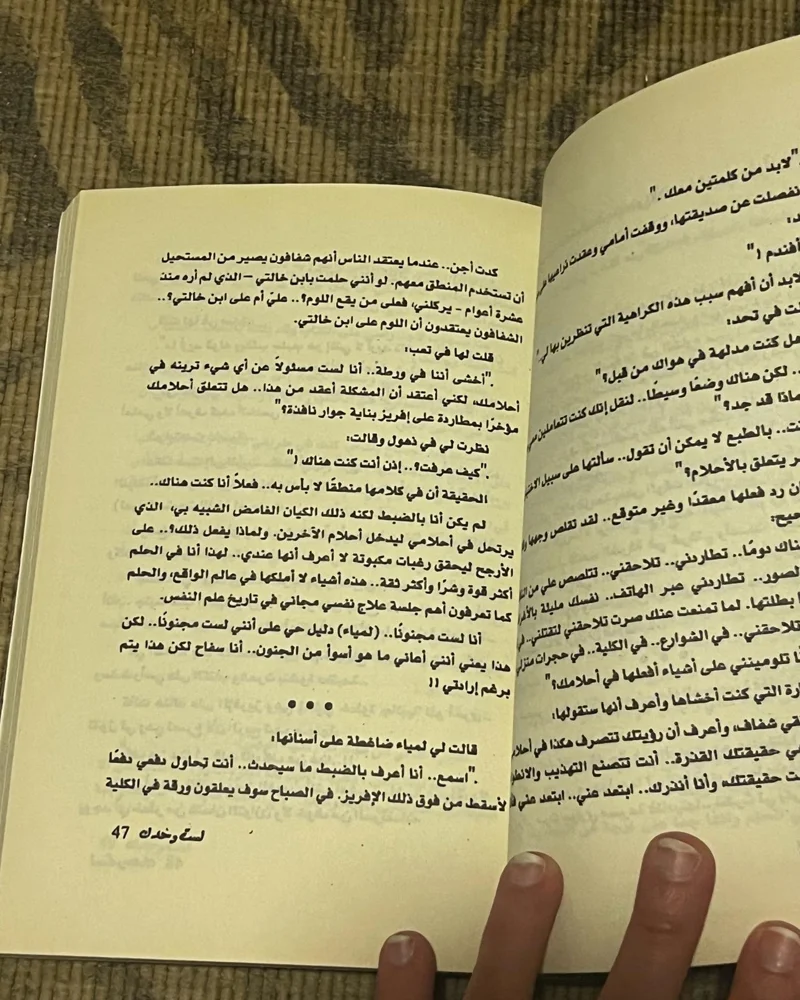 "لابد من كلمتين معك."
نفصلت عن صديقتها، ووقفت أمامي وعقدت ذراعيها
أفندم !"
لابد أن أفهم سبب هذه الكراهية التي تنظرين بها لي."
في تحد:
هل كنت مدلهة في هواك من قبل؟"
.. لكن هناك وضعًا وسيطًا.. لنقل إنك كنت تتعاملين
ماذا قد جد؟"
.. بالطبع لا يمكن أن تقول.. سألتها على سبيل
ر يتعلق بالأحلام؟"
ن رد فعلها معقدًا وغير متوقع.. لقد تقلص وجهها
حيح:
ناك دومًا.. تطاردني.. تلاحقني.. تتلصص علي من
لصور.. تطاردني عبر الهاتف.. نفسك مليئة
ا بطلتها. لما تمنعت عنك صرت تلاحقني لتقتلني..
تلاحقني.. في الشوارع.. في الكلية.. في حجرات
ا تلومينني على أشياء أفعلها في أحلامك؟"
ارة التي كنت أخشاها وأعرف أنها ستقولها:
قي شفاف، وأعرف أن رؤيتك تتصرف هكذا في
ي حقيقتك القذرة.. أنت تتصنع التهذيب
ت حقيقتك، وأنا أنذرك.. ابتعد عني.. ابتعد عني
كدت أجن.. عندما يعتقد الناس أنهم شفافون يصير من المستحيل
أن تستخدم المنطق معهم. لو أنني حلمت بابن خالتي – الذي لم أره منذ
عشرة أعوام – يركلني، فعلى من يقع اللوم؟.. عليّ أم على ابن خالتي؟..
الشفافون يعتقدون أن اللوم على ابن خالتي.
قلت لها في تعب:
."أخشى أننا في ورطة.. أنا لست مسئولاً عن أي شيء ترينه في
أحلامك، لكني أعتقد أن المشكلة أعقد من هذا.. هل تتعلق أحلامك
مؤخرًا بمطاردة على إفريز بناية جوار نافذة؟"
نظرت لي في ذهول وقالت:
."كيف عرفت؟.. إذن أنت كنت هناك !"
الحقيقة أن في كلامها منطقًا لا بأس به.. فعلاً أنا كنت هناك..
لم يكن أنا بالضبط لكنه ذلك الكيان الغامض الشبيه بي، الذي
يرتحل في أحلامي ليدخل أحلام الآخرين. ولماذا يفعل ذلك؟.. على
الأرجح ليحقق رغبات مكبوتة لا أعرف أنها عندي.. لهذا أنا في الحلم
أكثر قوة وشرًا وأكثر ثقة.. هذه أشياء لا أملكها في عالم الواقع، والحلم
كما تعرفون أهم جلسة علاج نفسي مجاني في تاريخ علم النفس.
أنا لست مجنونًا.. (لمياء) دليل حي على أنني لست مجنونًا.. لكن
هذا يعني أنني أعاني ما هو أسوأ من الجنون.. أنا سفاح لكن هذا يتم
برغم إرادتي !!
● ● ●
قالت لي لمياء ضاغطة على أسنانها:
."اسمع.. أنا أعرف بالضبط ما سيحدث.. أنت تحاول دفعي دفعًا
لأسقط من فوق ذلك الإفريز. في الصباح سوف يعلقون ورقة في الكلية
لست وحدك 47